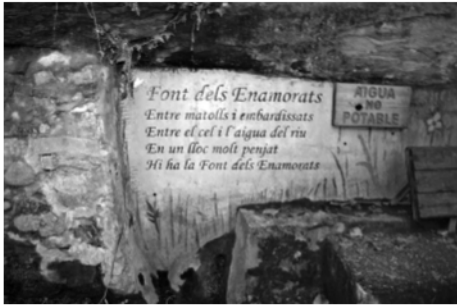 Font dels Enamorats
Entre matolls i embardissats
Entre el cel i l'aigua del riu
En un lloc molt penjat
Hi ha la Font dels Enamorats
AIGUA
NO
POTABLE